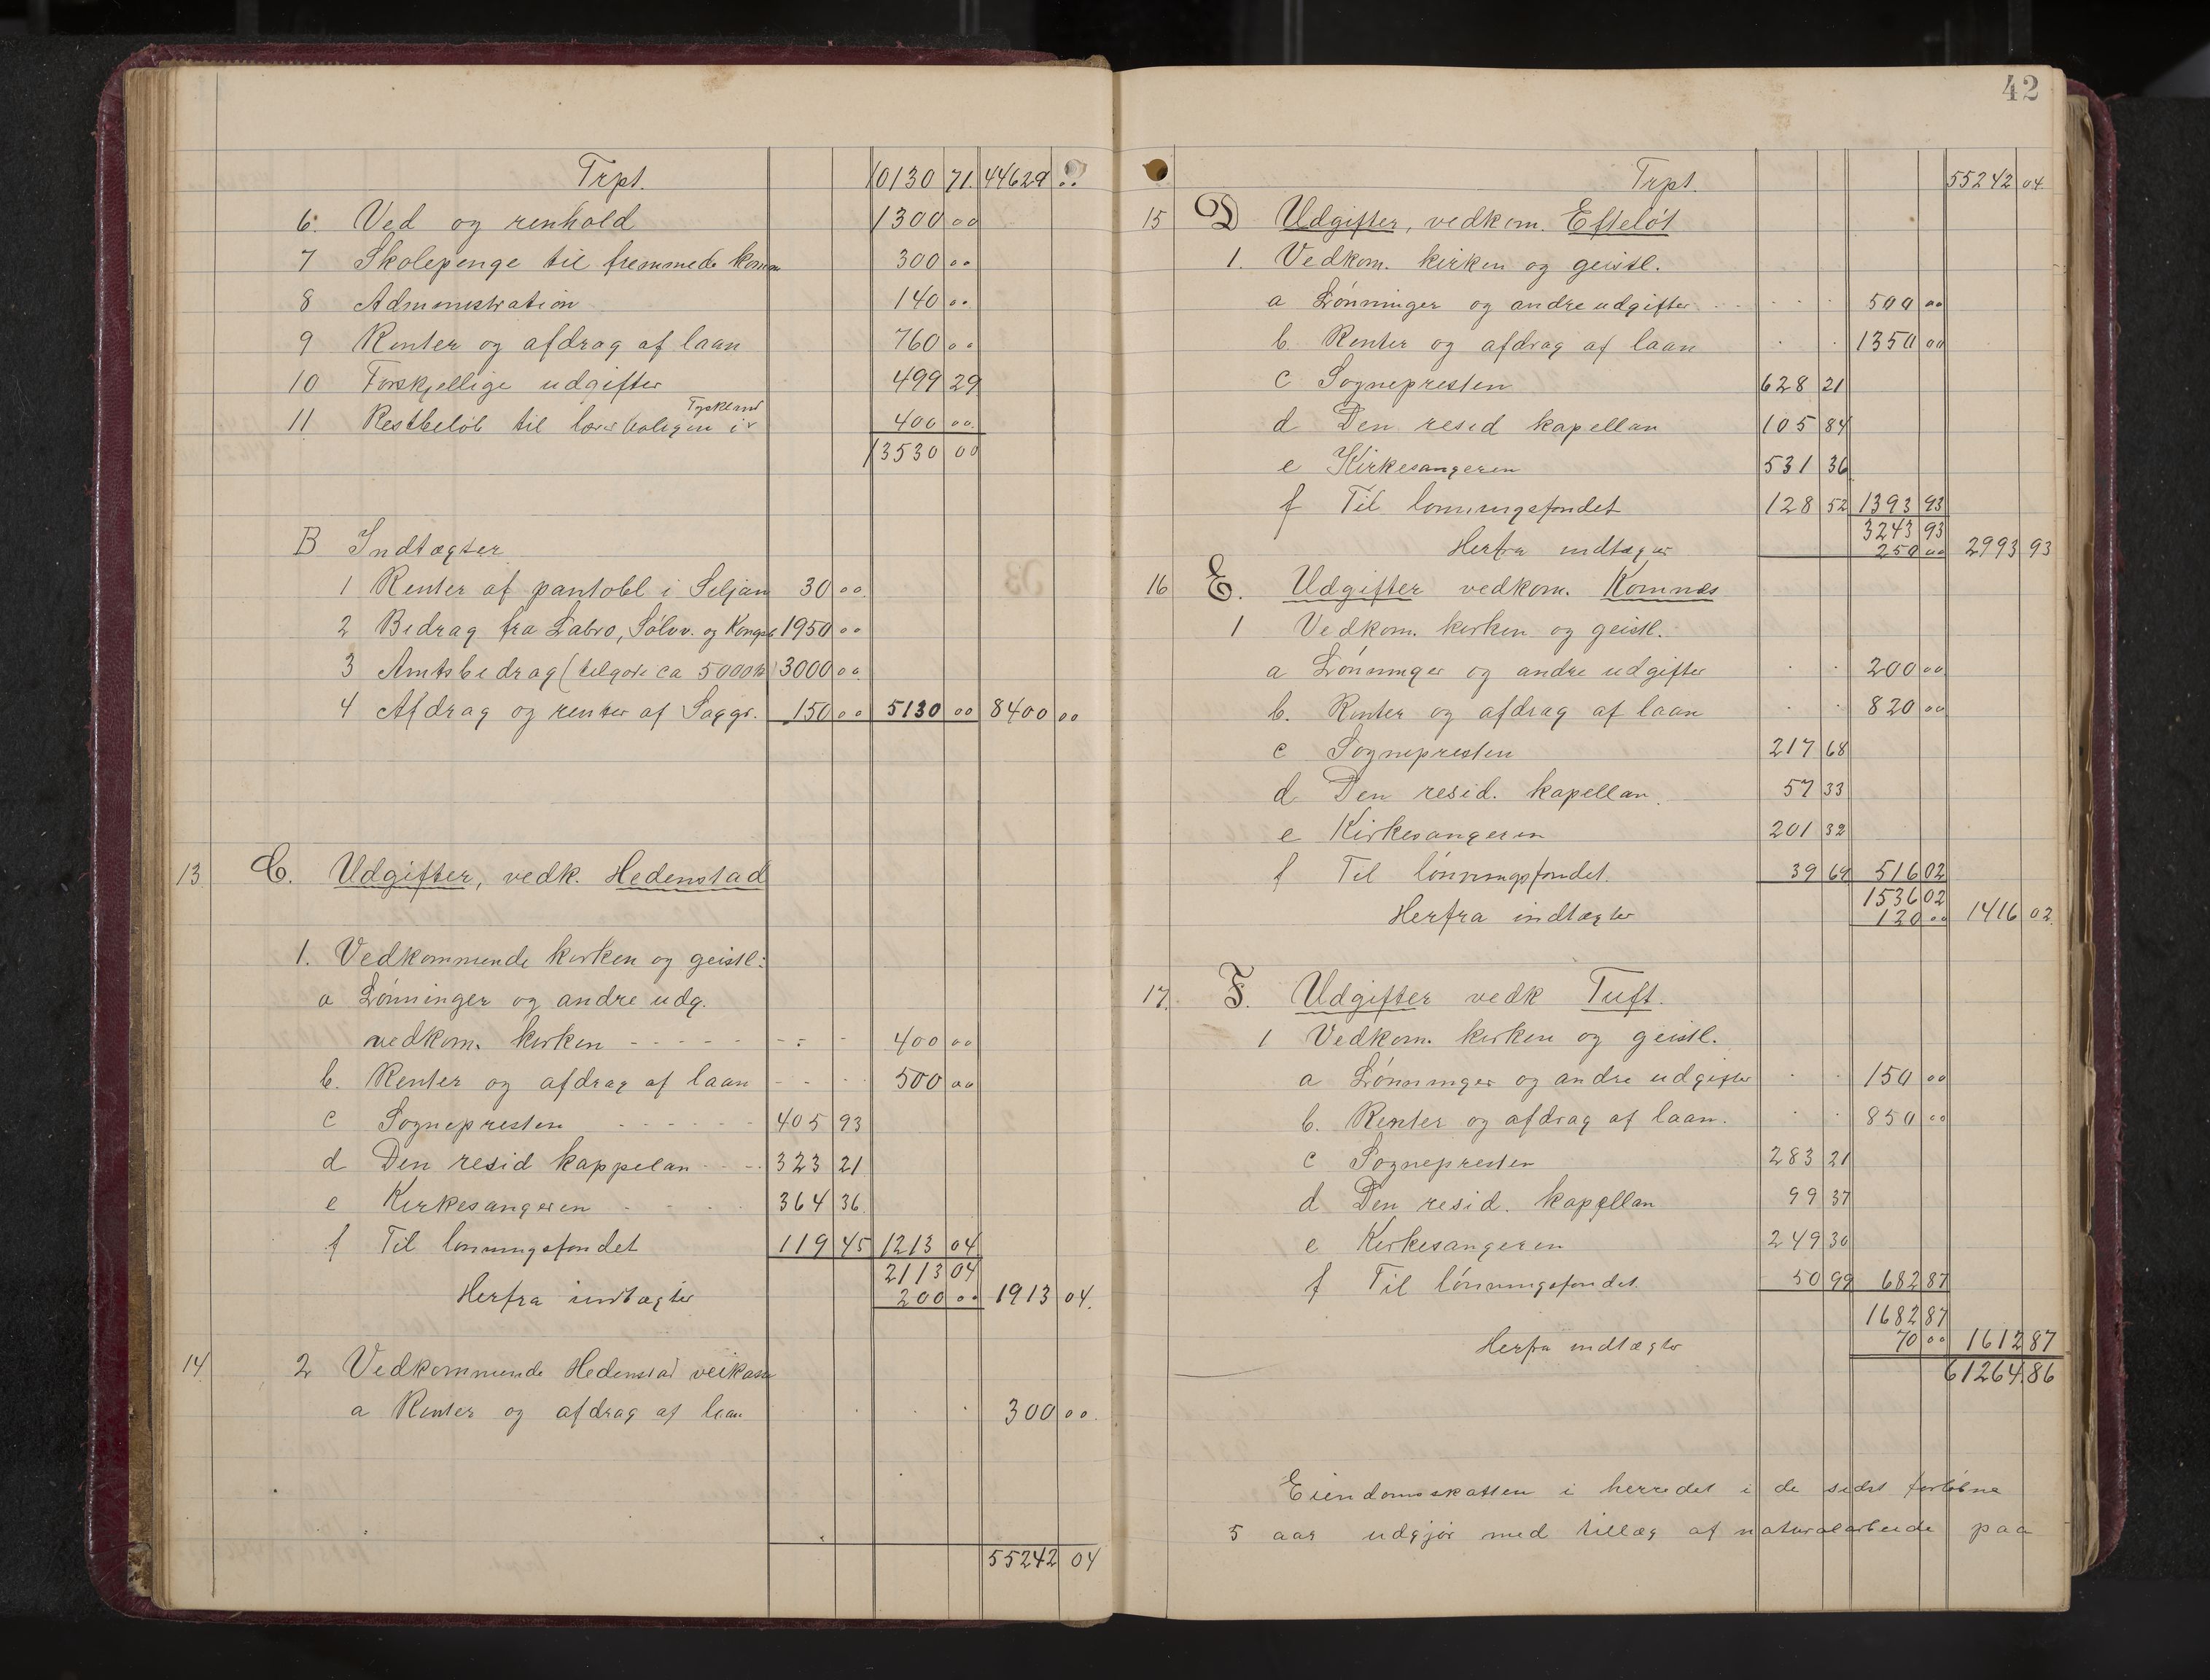 Trpt. 10130 71. 44629 00
6. Ved og renhold 1300 00
7 Skolepenge til fremmede kom 300 00
8 Administration 140 00
9 Renter og afdrag af laan 760 00
10 Forskjellige udgifter 499 29
Tyskland
11 Restbeløb til lærerboligen i 400 00
13530 00
B Indtægter
1 Renter af pantobl i Seljan 30 00
2 Bidrag fra Labro, Sølvv. og Kongsb 1950 00
3 Amtsbidrag (tilgode ca 5000 kr) 3000 00
4 Afdrag og renter af Saggr. 150 00 5130 00 8400 00
13 C. Udgifter, vedk. Hedenstad
1. Vedkommende kirken og geistl:
a Lønninger og andre udg.
vedkom. kirken - - - - - 400 00
b. Renter og afdrag af laan - - - 500 00
c Sognepresten - - - - - - 405 93
d Den resid kappelan - - - 323 21
e Kirkesangeren - - - - 364 36
f Til lønningsfondet 119 45 1213 04
2113 04
Herfra indtægter 200 00 1913 04.
14 2 Vedkommende Hedenstad veikasse
a Renter og afdrag af laan 300 00
55242 04
42
Trpt. 55242 04
15 D Udgifter, vedkom. Efteløt
1. Vedkom. kirken og geistl.
a Lønninger og andre udgifter 500 00
b. Renter og afdrag af laan 1350 00
c Sognepresten 628 21
d Den resid kapellan 105 84
e Kirkesangeren 531 36
f Til lønningsfondet 128 52 1393 93
3243 93
Herfra indtægter 250 00 2993 93
16 E. Udgifter vedkom. Komnes
1 Vedkom. kirken og geistl.
a Lønninger og andre udgifter 200 00
b. Renter og afdrag af laan 820 00
c Sognepresten 217 68
d Den resid. kapellan. 57 33
e Kirkesangeren 201 32
f Til lønningsfondet. 39 69 516 02
1536 02
Herfra indtægter 120 00 1416 02.
17. F. Udgifter vedk Tuft.
1 Vedkom. kirken og geistl.
a Lønninger og andre udgifter 150 00
b. Renter og afdrag af laan. 850 00
c Sognepresten 283 21
d Den resid. kapellan 99 37
e Kirkesangeren 249 30
f Til lønningsfondet. 50 99 682 87
1682 87
Herfra indtægter 70 00 1612 87
61264.86
Eiendomsskatten i herredet i de sidst forløbne
5 aar udgjør med tillæg af naturalarbeide paa